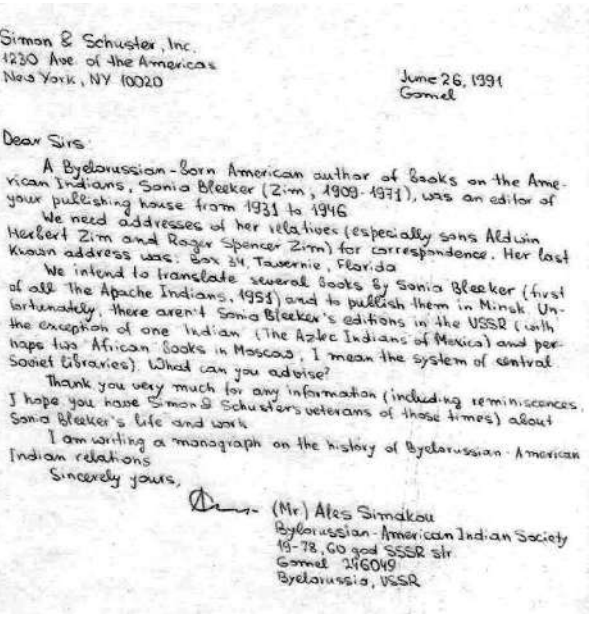 Simon & Schuster, Inc.
1230 Ave. of the Americas
New York, NY 10020
June 26, 1991
Gomel
Dear Sirs:
A Byelorussian-Born American author of Books on the Ame-
rican Indians, Sonia Bleeker (Zim, 1909-1971), was an editor of
your publishing house from 1931 to 1946
We need addresses of her relatives (especially sons Aldwin
Herbert Zim and Roger Spencer Zim) for correspondence. Her last
known address was: Box 34, Tavernie, Florida
We intend to translate several Books by Sonia Bleeker (first
of all The Apache Indians, 1951) and to publish them in Minsk. Un-
fortunately, there aren't Sonia Bleeker's editions in the USSR (with
the exception of one "Indian" (The Aztec Indians of Mexico) and per-
haps two "African" Books in Moscow, I mean the system of central
Soviet libraries). What can you advise?
Thank you very much for any information (including reminiscences,
I hope you have Simon & Schuster's veterans of those times) about
Sonia Bleeker's life and work
I am writing a monograph on the history of Byelorussian-American
Indian relations
Sincerely yours,
(Mr) Ales Simakou
Bylorussian-American Indian Society
19-78, 60 god SSSR str.
Gomel 246049
Byelorussia, USSR